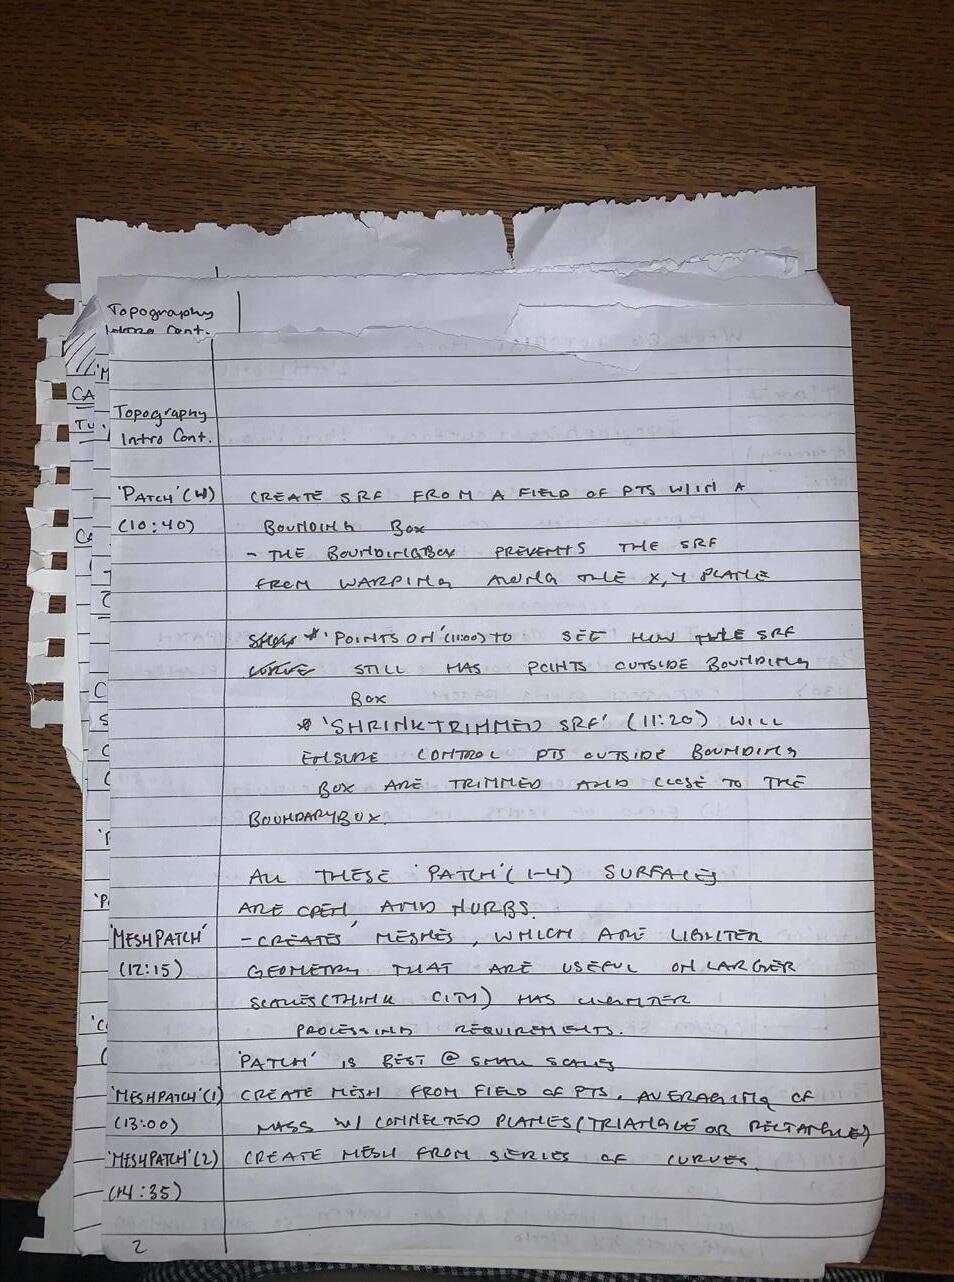 Topography
Intro Cont.
'M
CA
TU.
CA
Topography
Intro Cont.
'PATCH' (4) CREATE SRF FROM A FIELD OF PTS W/IN A
(10:40) BOUNDING BOX
- THE BOUNDINGBOX PREVENTS THE SRF
FROM WARPING ALONG THE X,Y PLANE
* 'POINTS ON' (11:00) TO SEE HOW THE SRF
STILL HAS POINTS OUTSIDE BOUNDING
BOX
* 'SHRINKTRIMMED SRF' (11:20) WILL
ENSURE CONTROL PTS OUTSIDE BOUNDING
BOX ARE TRIMMED AND CLOSE TO THE
BOUNDARYBOX.
ALL THESE 'PATCH' (1-4) SURFACES
ARE OPEN, AND NURBS.
'MESHPATCH' - CREATES MESHES, WHICH ARE LIGHTER
(12:15) GEOMETRY THAT ARE USEFUL ON LARGER
SCALES (THINK CITY) HAS LIGHTER
PROCESSING REQUIREMENTS.
'PATCH' IS BEST @ SMALL SCALES
'MESHPATCH' (1) CREATE MESH FROM FIELD OF PTS, AVERAGING OF
(13:00) MASS W/ CONNECTED PLANES (TRIANGLE OR RECTANGLE)
'MESHPATCH' (2) CREATE MESH FROM SERIES OF CURVES.
(14:35)
2